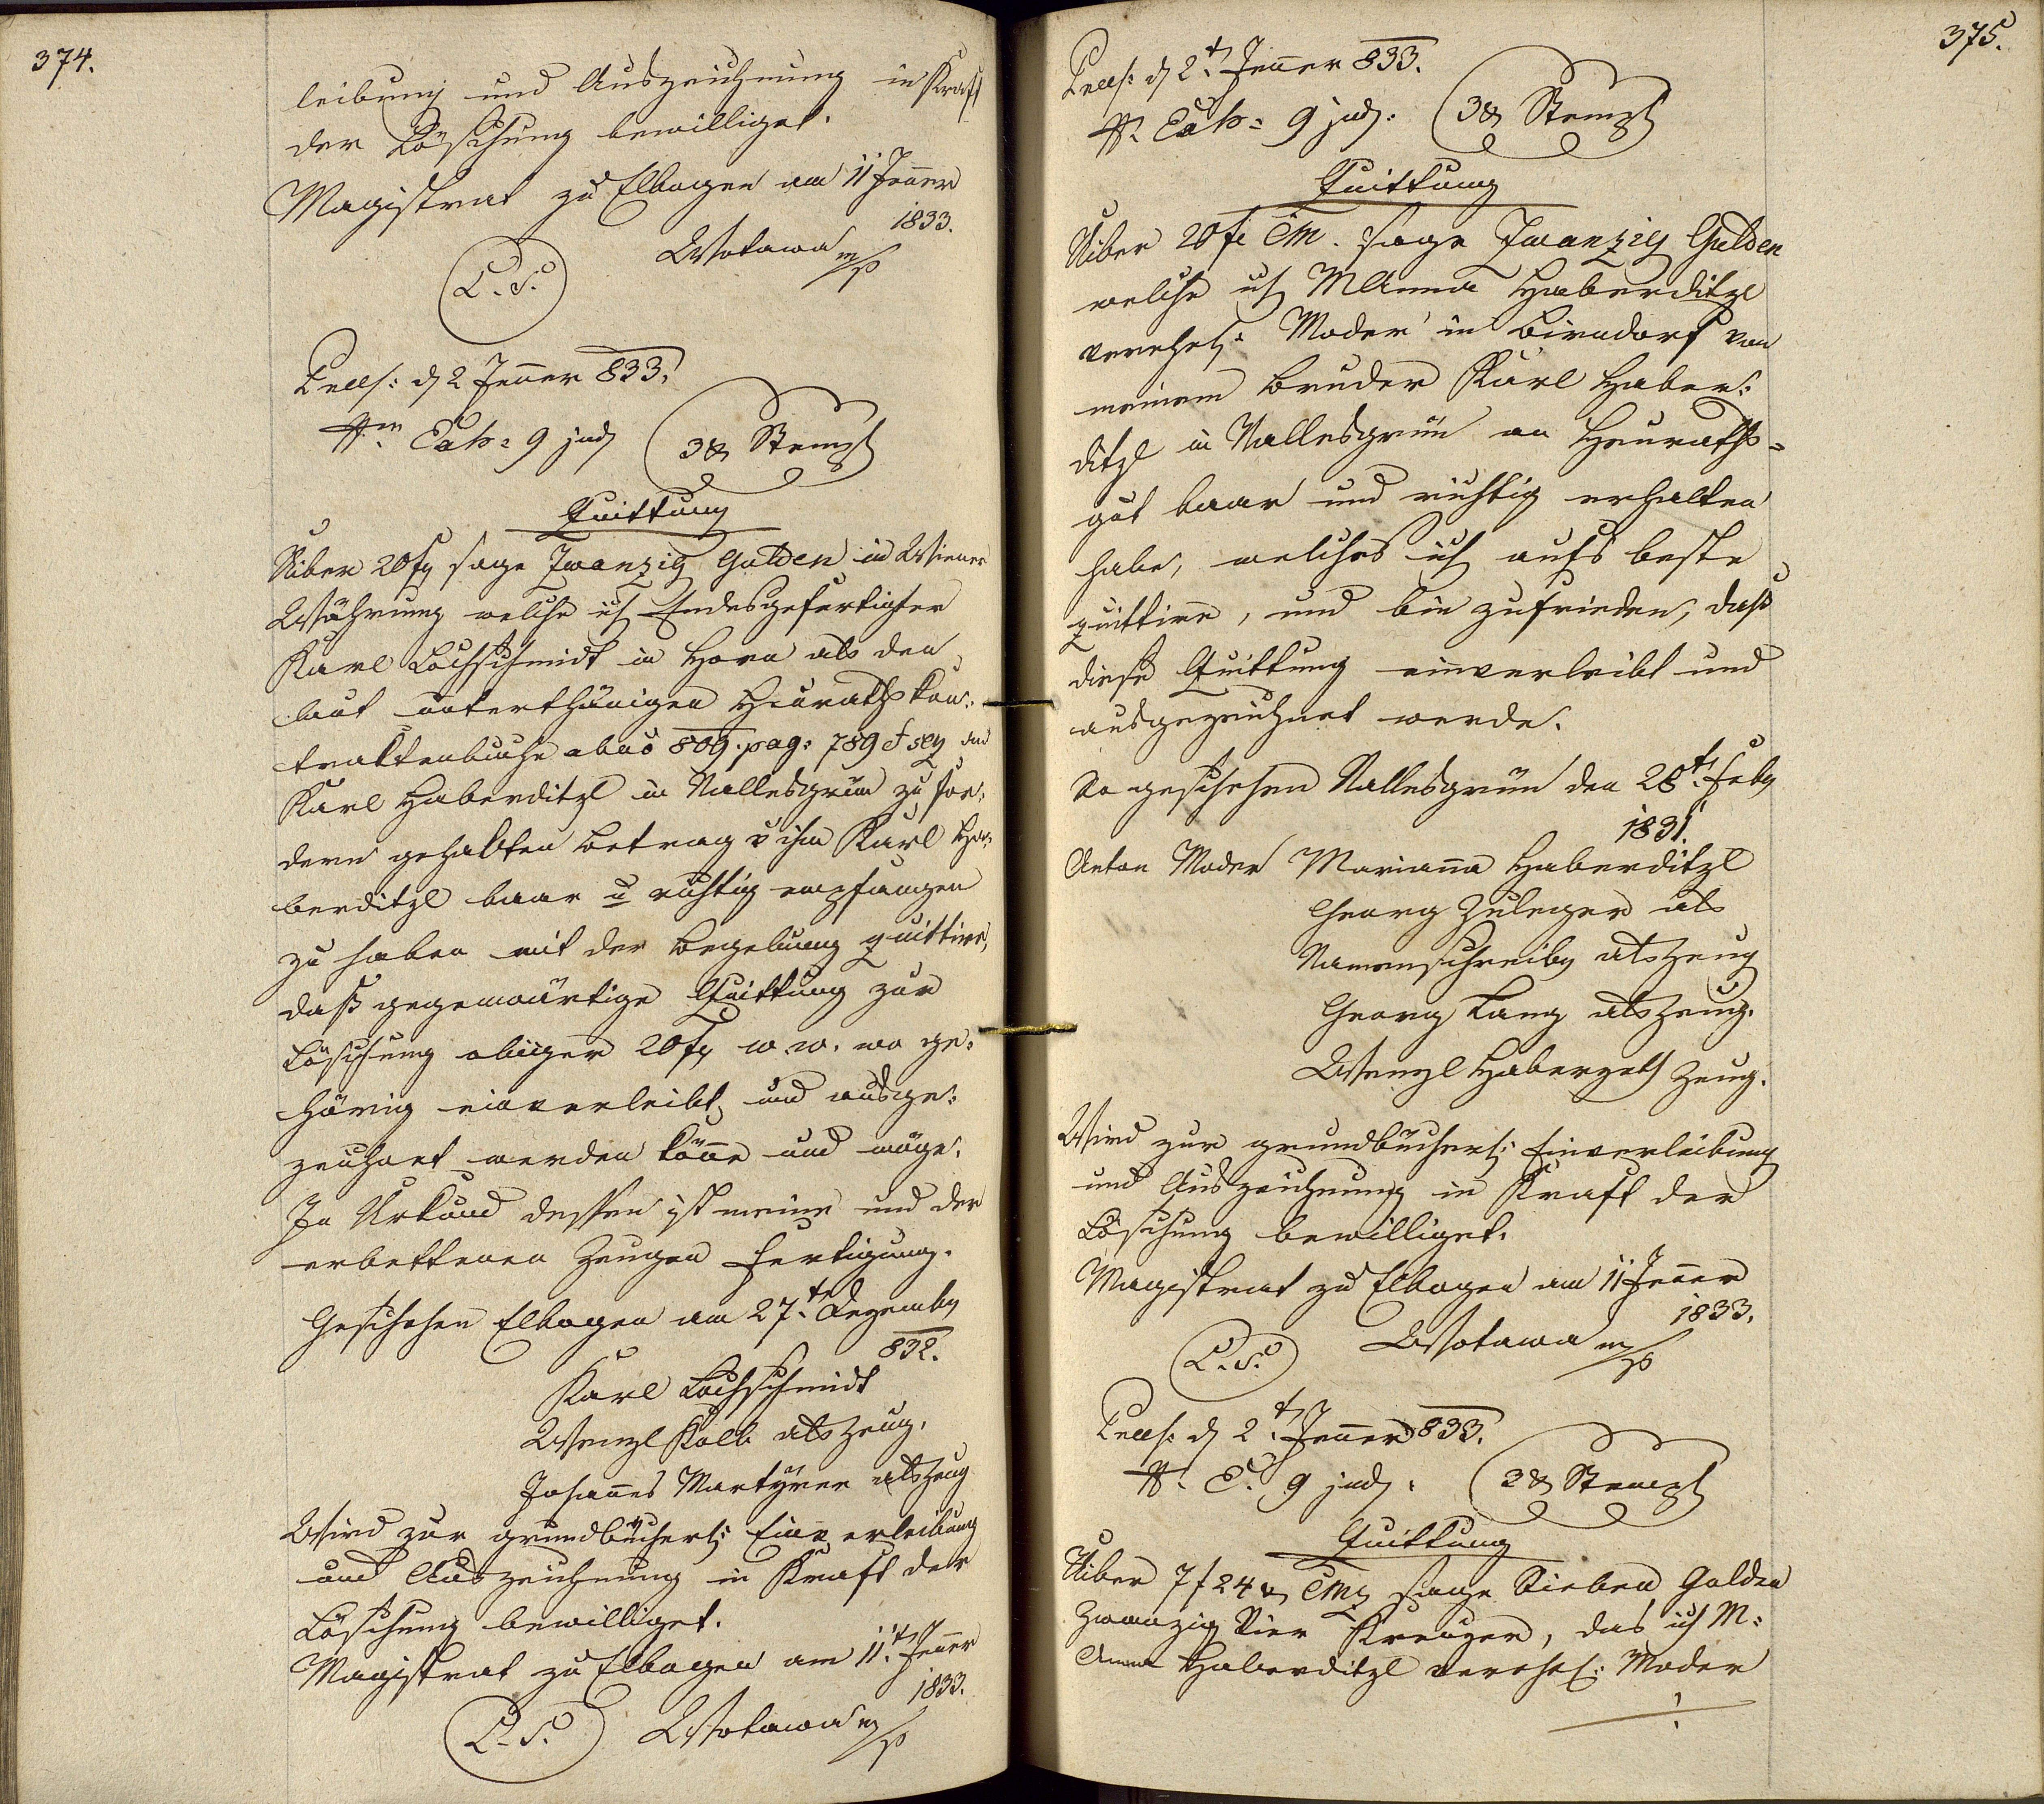 374.
leibung und Auszeichnung in Kraft
der Löschung bewilliget.
Magistrat zu Elbogen am 11 Jenner
1833.
L. S. Wotawa m/p
Praes: d 2 Jenner 833.
9 jud 3 x Stempl
Quittung
Über 20 f sage Zwanzig Gulden in Wiener
Währung welche ich Endesgefertigter
Karl Lochschmidt in Horn als den
laut unterthänigen Heurathskon:
traktenbuche 809. pag: 789 et seq
Karl Haberditzl in Nallesgrün zu for:
dern gehabten Betrag v ihm Karl Ha:
berditzl baar u richtig empfangen
zu haben mit der Begebung quittire,
daß gegenwärtige Quittung zur
Löschung obiger 20 f w. w. wo ge:
hörig einverleibt, und ausge:
zeichnet werden könne und möge.
In Urkund dessen ist meine und der
erbettenen Zeugen Fertigung.
Geschehen Elbogen am 27.t Dezemb
832.
Karl Lochschmidt
Wenzl Kolb als Zeug.
Johannes Martÿrer als Zeug
Wird zur grundbücherl: Einverleibung
und Auszeichnung in Kraft der
Löschung bewilliget.
Magistrat zu Elbogen am 11.t Jenner
1833.
L. S. Wotawa m/p
375.
Praes: d 2.t Jenner 833.
9 jud: 3 x Stempl
Quittung
Über 20 f CM. sage Zwanzig Gulden
welche ich MAnna Haberditzl
verehel: Moder in Birndorf von
meinem Bruder Karl Haber:
ditzl in Nallesgrün an Heuraths=
gut baar und richtig erhalten
habe, welches ich aufs beste
quittire, und bin zufrieden, daß
diese Quittung einverleibt und
ausgezeichnet werde.
So geschehen Nallesgrün den 28.t Feb
1831.
Anton Moder Marianna Haberditzl
Georg Zuleger als
Namenschreib als Zeug
Georg Lang als Zeug.
Wenzl Haberzetl Zeug.
Wird zur grundbücherl: Einverleibung
und Auszeichnung in Kraft der
Löschung bewilliget.
Magistrat zu Elbogen am 11 Jenner
1833.
L. S. Wotawa m/p
Praes: d 2.t Jenner 833.
9 jud: 3 x Stempl
Quittung
Über 7 f 24 x CM sage Sieben Gulden
zwanzig Vier Kreuzer, das ich M:
Anna Haberditzl verehel: Moder